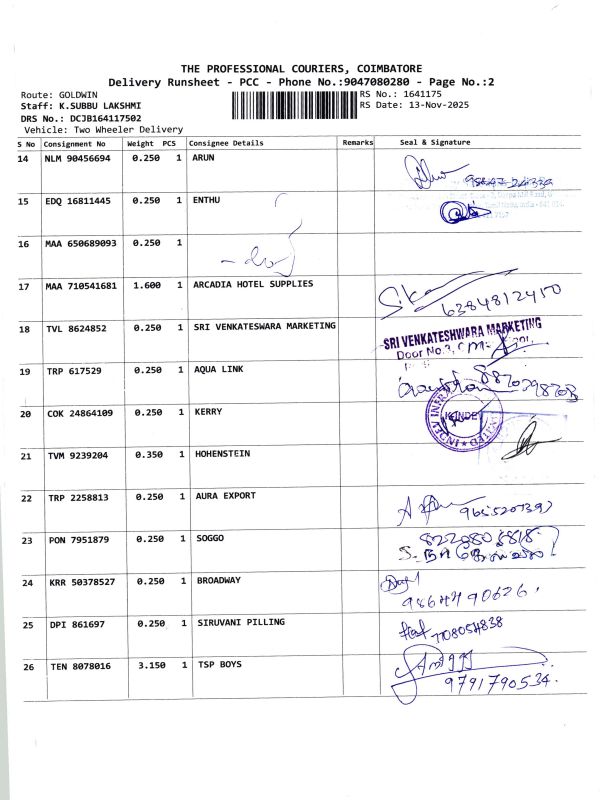 THE PROFESSIONAL COURIERS, COIMBATORE
Delivery Runsheet - PCC - Phone No.:9047080280 - Page No.:2
Route: GOLDWIN
RS No.: 1641175
Staff: K.SUBBU LAKSHMI
RS Date: 13-Nov-2025
DRS No.: DCJB164117502
Vehicle: Two Wheeler Delivery
S No Consignment No Weight PCS Consignee Details Remarks Seal & Signature
14 NLM 90456694 0.250 1 ARUN
15 EDQ 16811445 0.250 1 ENTHU
16 MAA 650689093 0.250 1
17 MAA 710541681 1.600 1 ARCADIA HOTEL SUPPLIES
6384812450
18 TVL 8624852 0.250 1 SRI VENKATESWARA MARKETING
SRI VENKATESHWARA MARKETING
Door No.3,
19 TRP 617529 0.250 1 AQUA LINK
20 COK 24864109 0.250 1 KERRY
21 TVM 9239204 0.350 1 HOHENSTEIN
22 TRP 2258813 0.250 1 AURA EXPORT
23 PON 7951879 0.250 1 SOGGO
24 KRR 50378527 0.250 1 BROADWAY
9864490626
25 DPI 861697 0.250 1 SIRUVANI PILLING
7708054838
26 TEN 8078016 3.150 1 TSP BOYS
9791790534